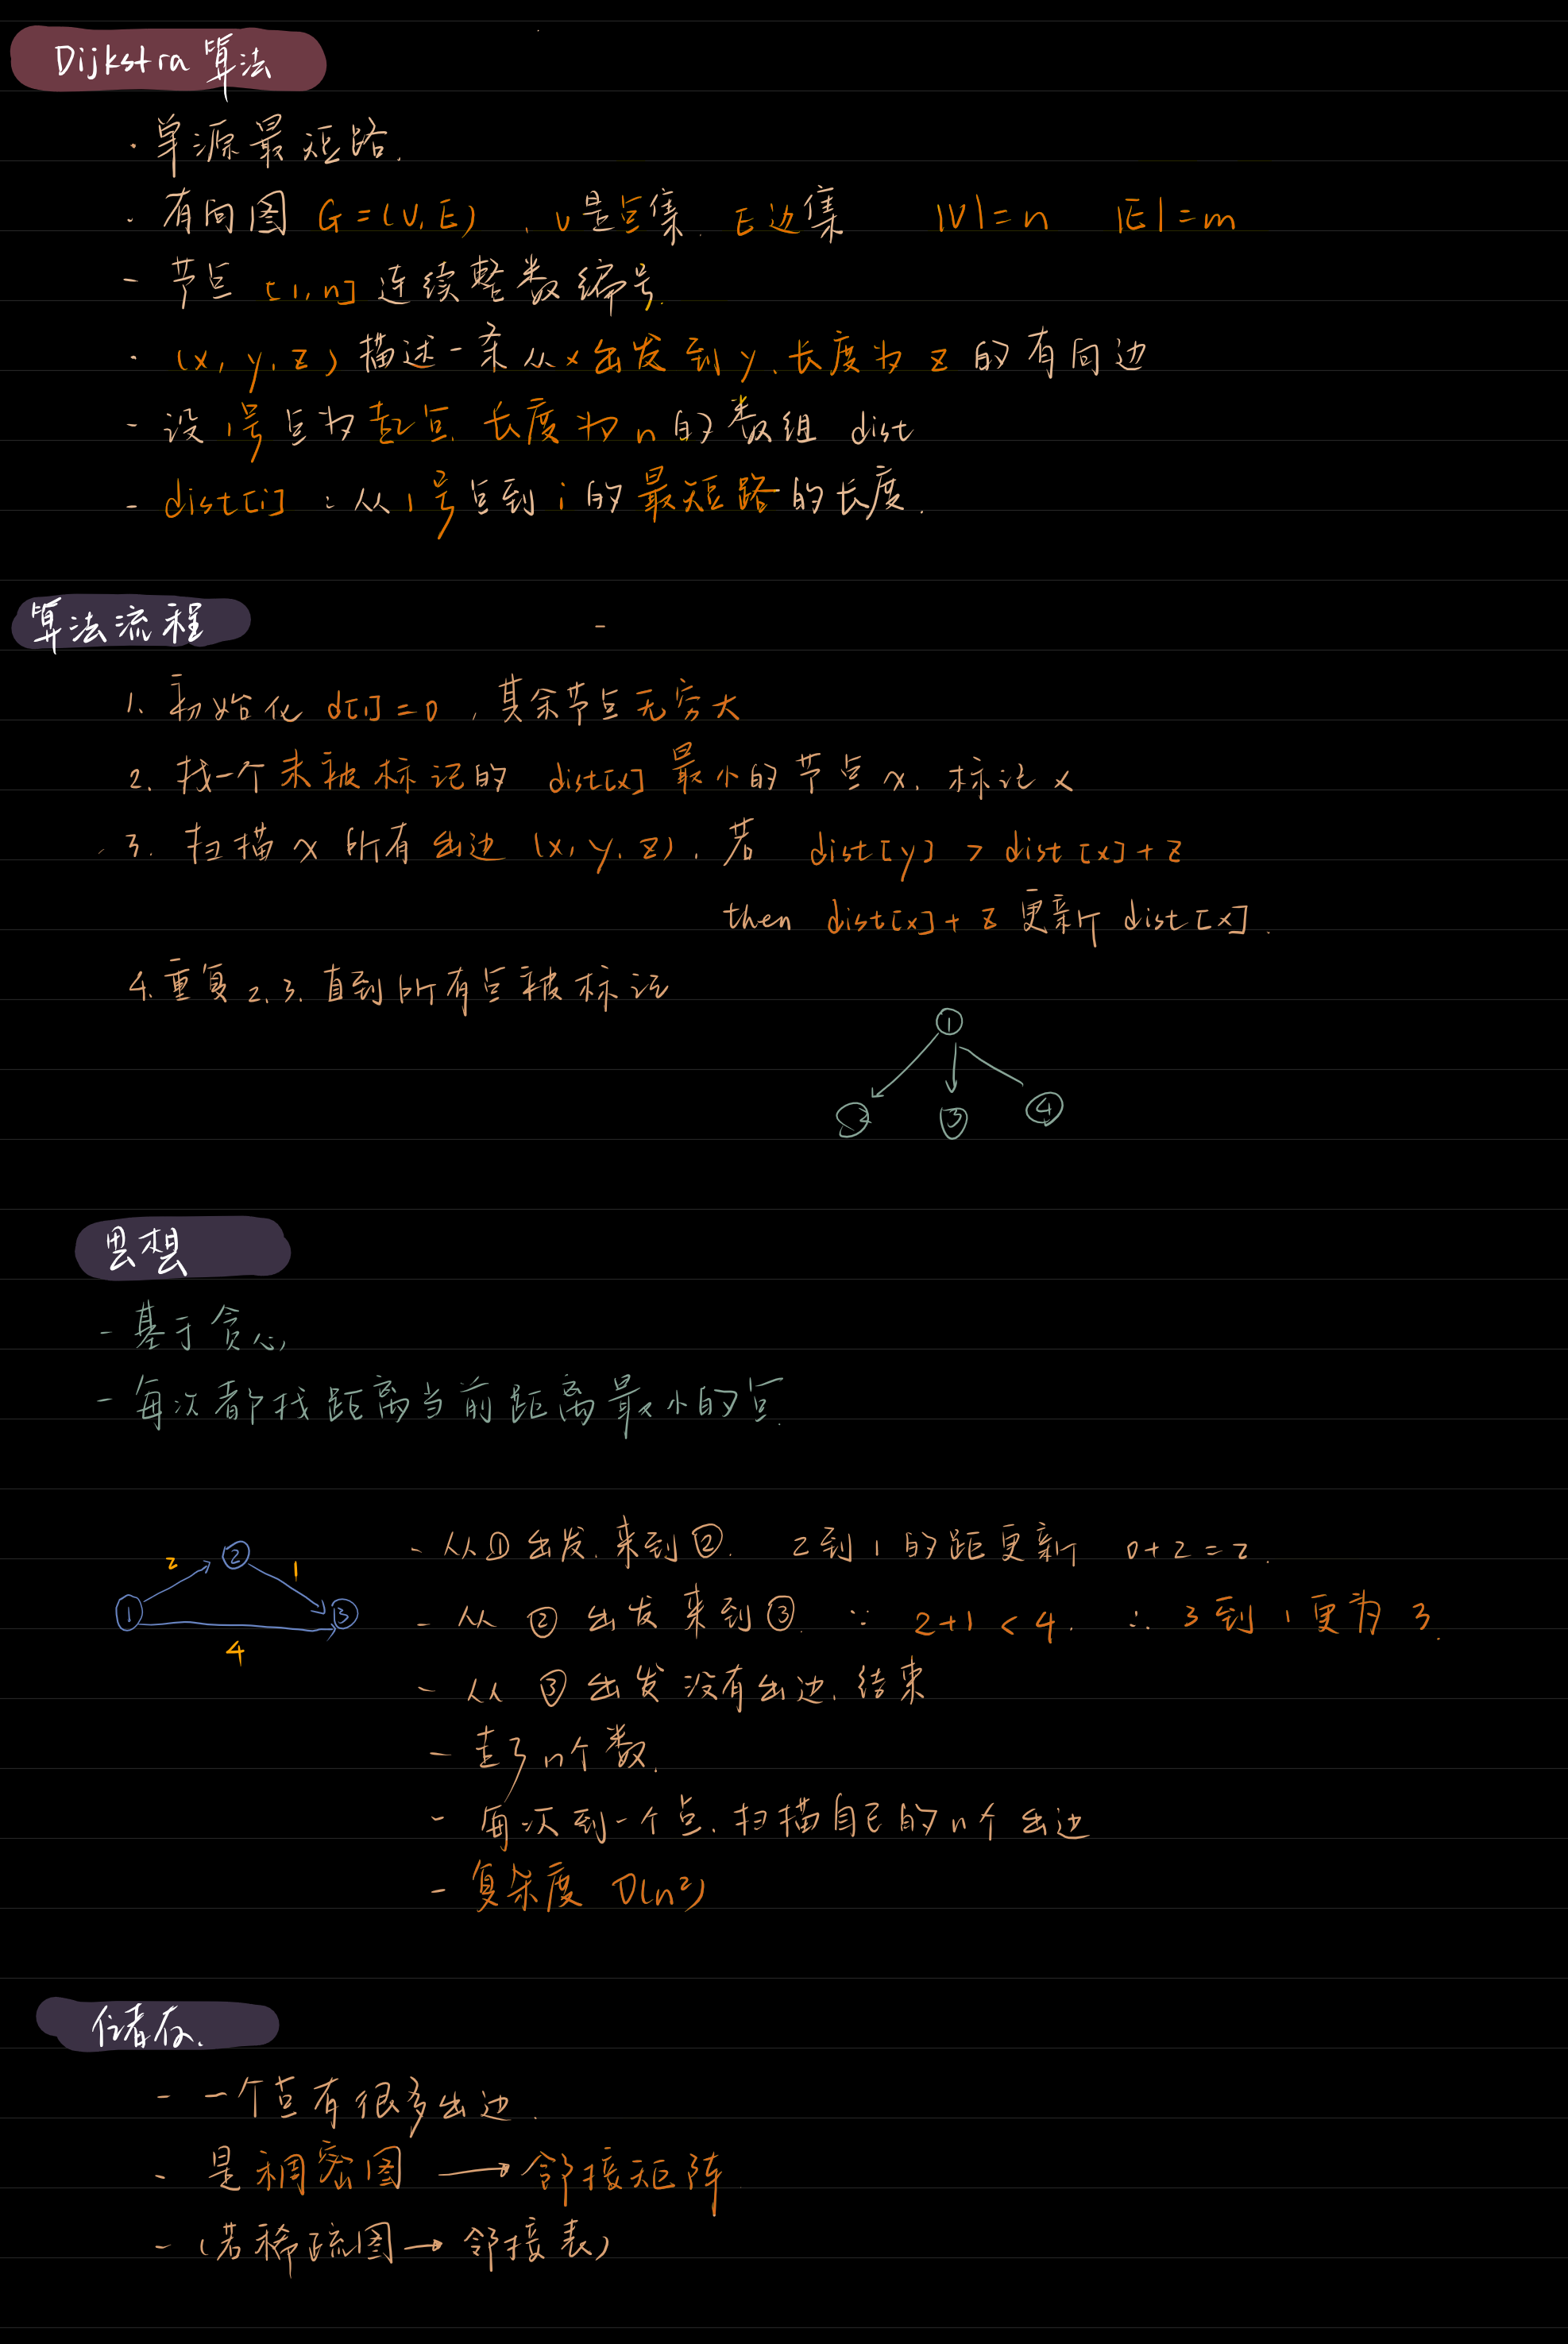 Dijkstra 算法
· 单源最短路.
· 有向图 G=(V,E) , V是点集. E边集 |V|=n |E|=m
- 节点 [1,n] 连续整数编号.
· (x,y,z) 描述一条从x出发到y、长度为z的有向边
- 设1号点为起点. 长度为n的数组 dist
- dist[i] : 从1号点到i的最短路的长度.
算法流程
1. 初始化 d[1]=0 , 其余节点无穷大
2. 找一个未被标记的 dist[x] 最小的节点x. 标记x
3. 扫描x所有出边 (x,y,z). 若 dist[y] > dist[x]+z
then dist[x]+z 更新 dist[x].
4. 重复2.3. 直到所有点被标记
①
② ③ ④
思想
- 基于贪心
- 每次都找距离当前距离最小的点.
- 从①出发. 来到②. 2到1的距更新 0+2=2.
2 ② 1
① ③
- 从②出发来到③. ∵ 2+1<4. ∴ 3到1更为3.
4
- 从③出发没有出边. 结束
- 走了n个数.
- 每次到一个点. 扫描自己的n个出边
- 复杂度 O(n²)
储存.
- 一个点有很多出边.
- 是稠密图 → 邻接矩阵.
- (若稀疏图→邻接表)